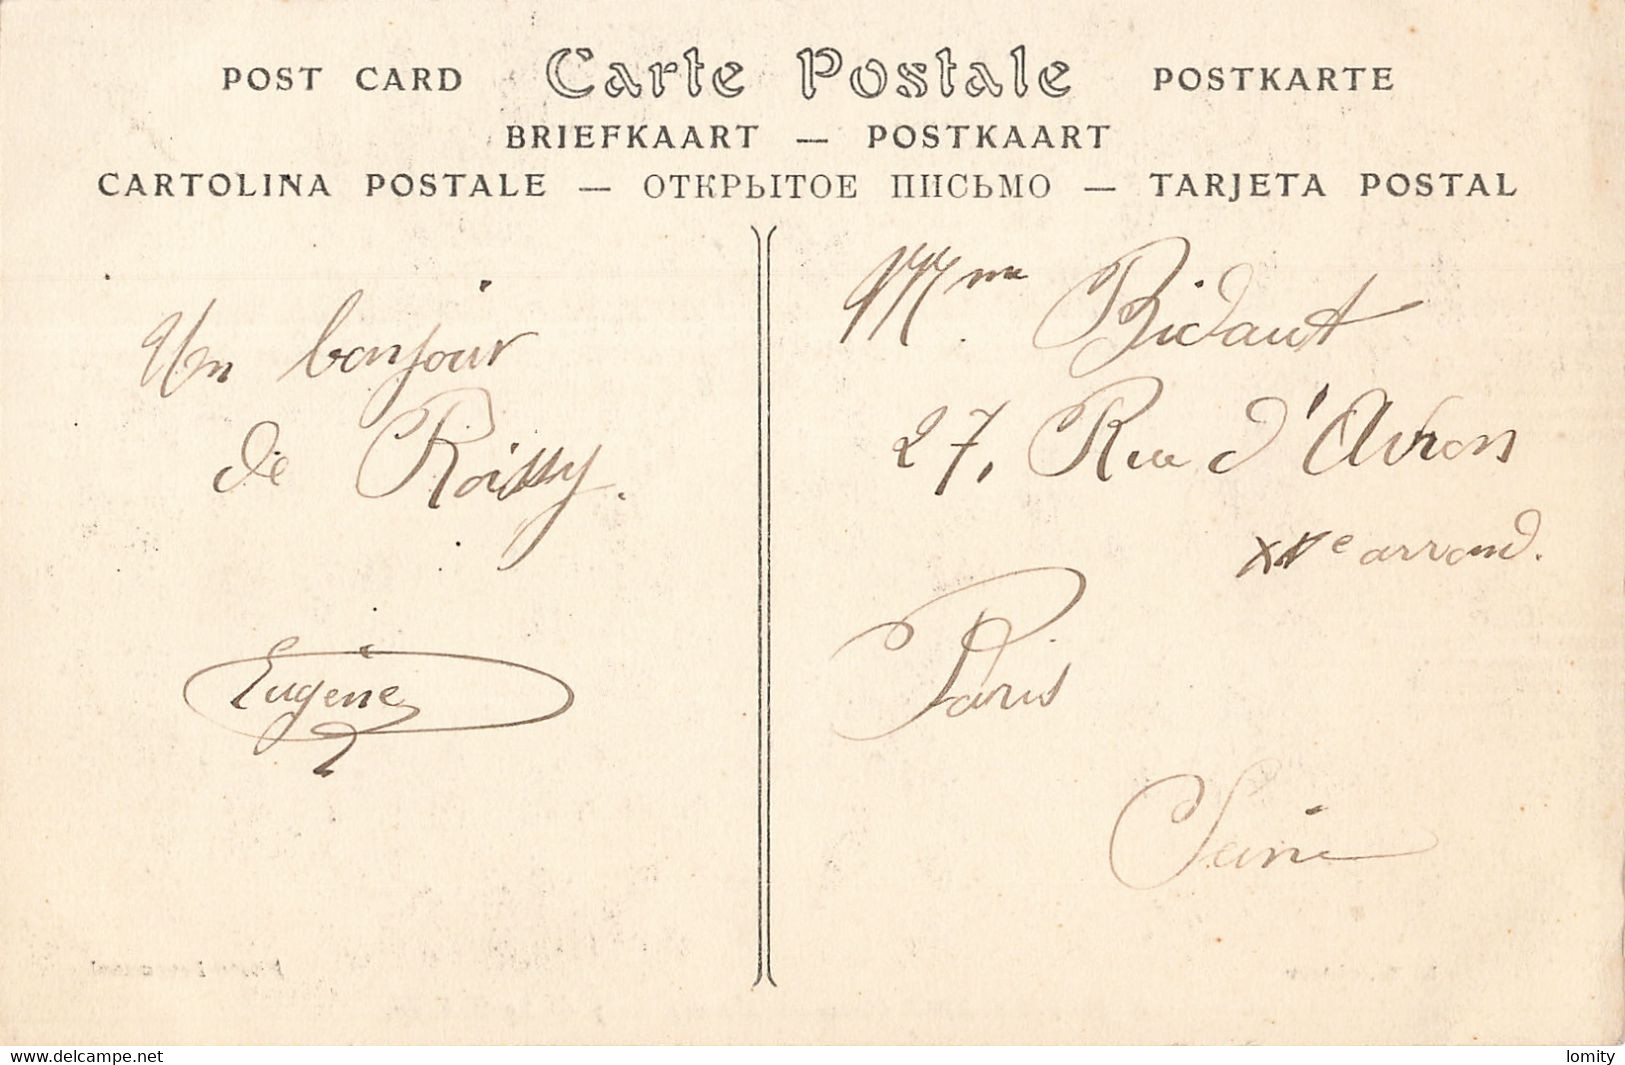 POST CARD Carte Postale POSTKARTE
BRIEFKAART — POSTKAART
CARTOLINA POSTALE — ОТКРЫТОЕ ПИСЬМО — TARJETA POSTAL
Un bonjour
de Roissy.
Eugène
Mme Bidaut
27, Rue d'Avron
XXe arrond.
Paris
Seine
www.delcampe.net
lomity